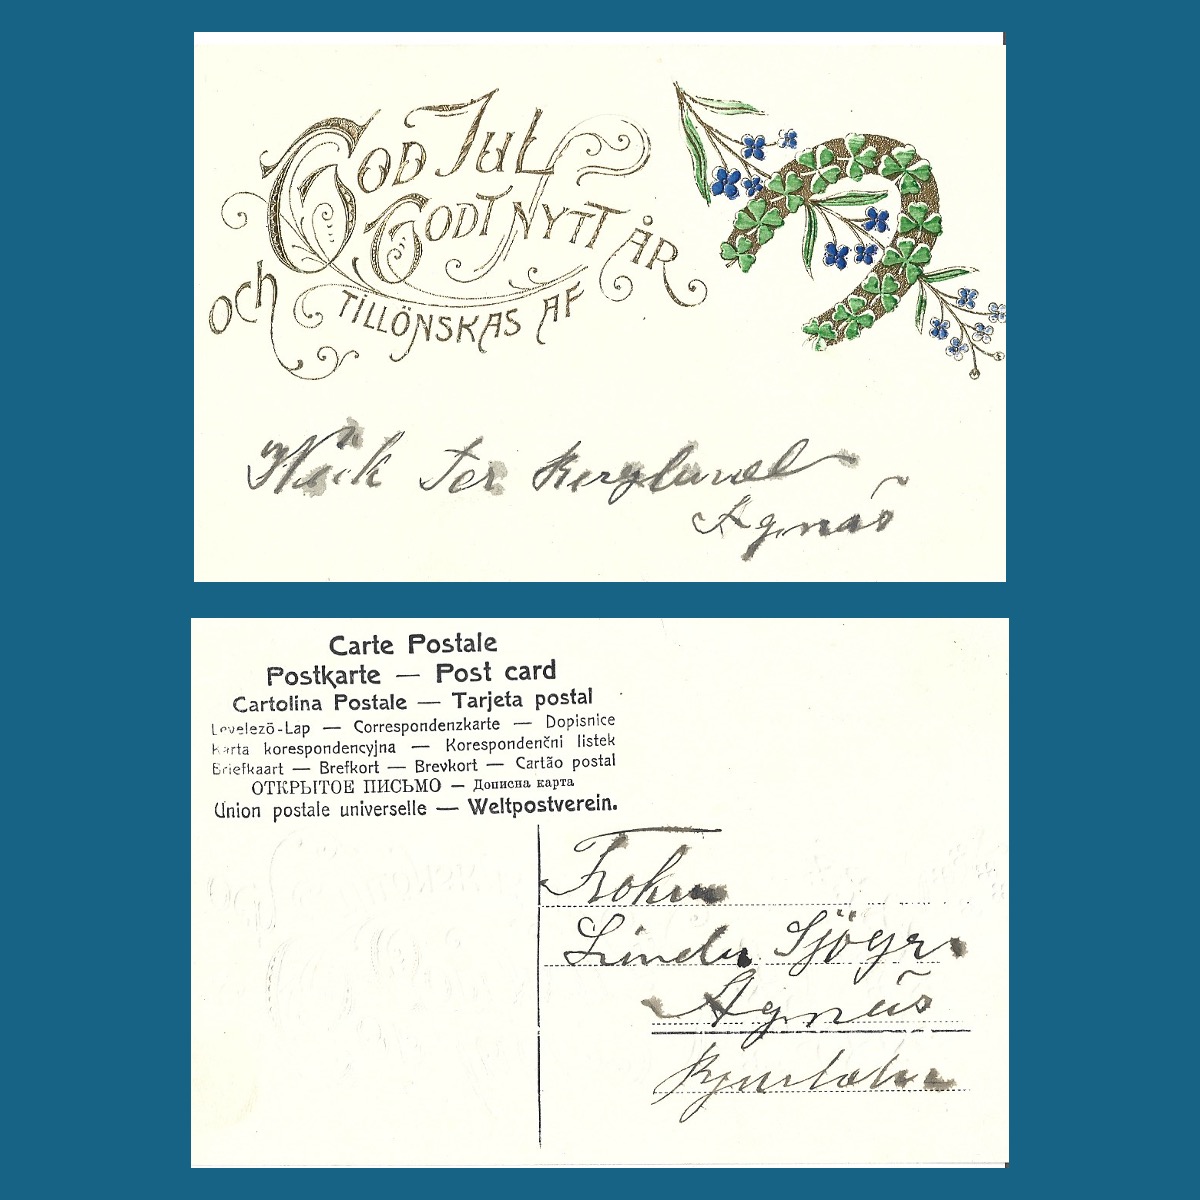 God Jul
och Godt Nytt År
tillönskas af
Berglund
Agnäs
Carte Postale
Postkarte — Post card
Cartolina Postale — Tarjeta postal
Levelező-Lap — Correspondenzkarte — Dopisnice
Karta korespondencyjna — Korespondenční listek
Briefkaart — Brefkort — Brevkort — Cartão postal
ОТКРЫТОЕ ПИСЬМО — Дописна карта
Union postale universelle — Weltpostverein.
Linda Sjögr
Agnäs